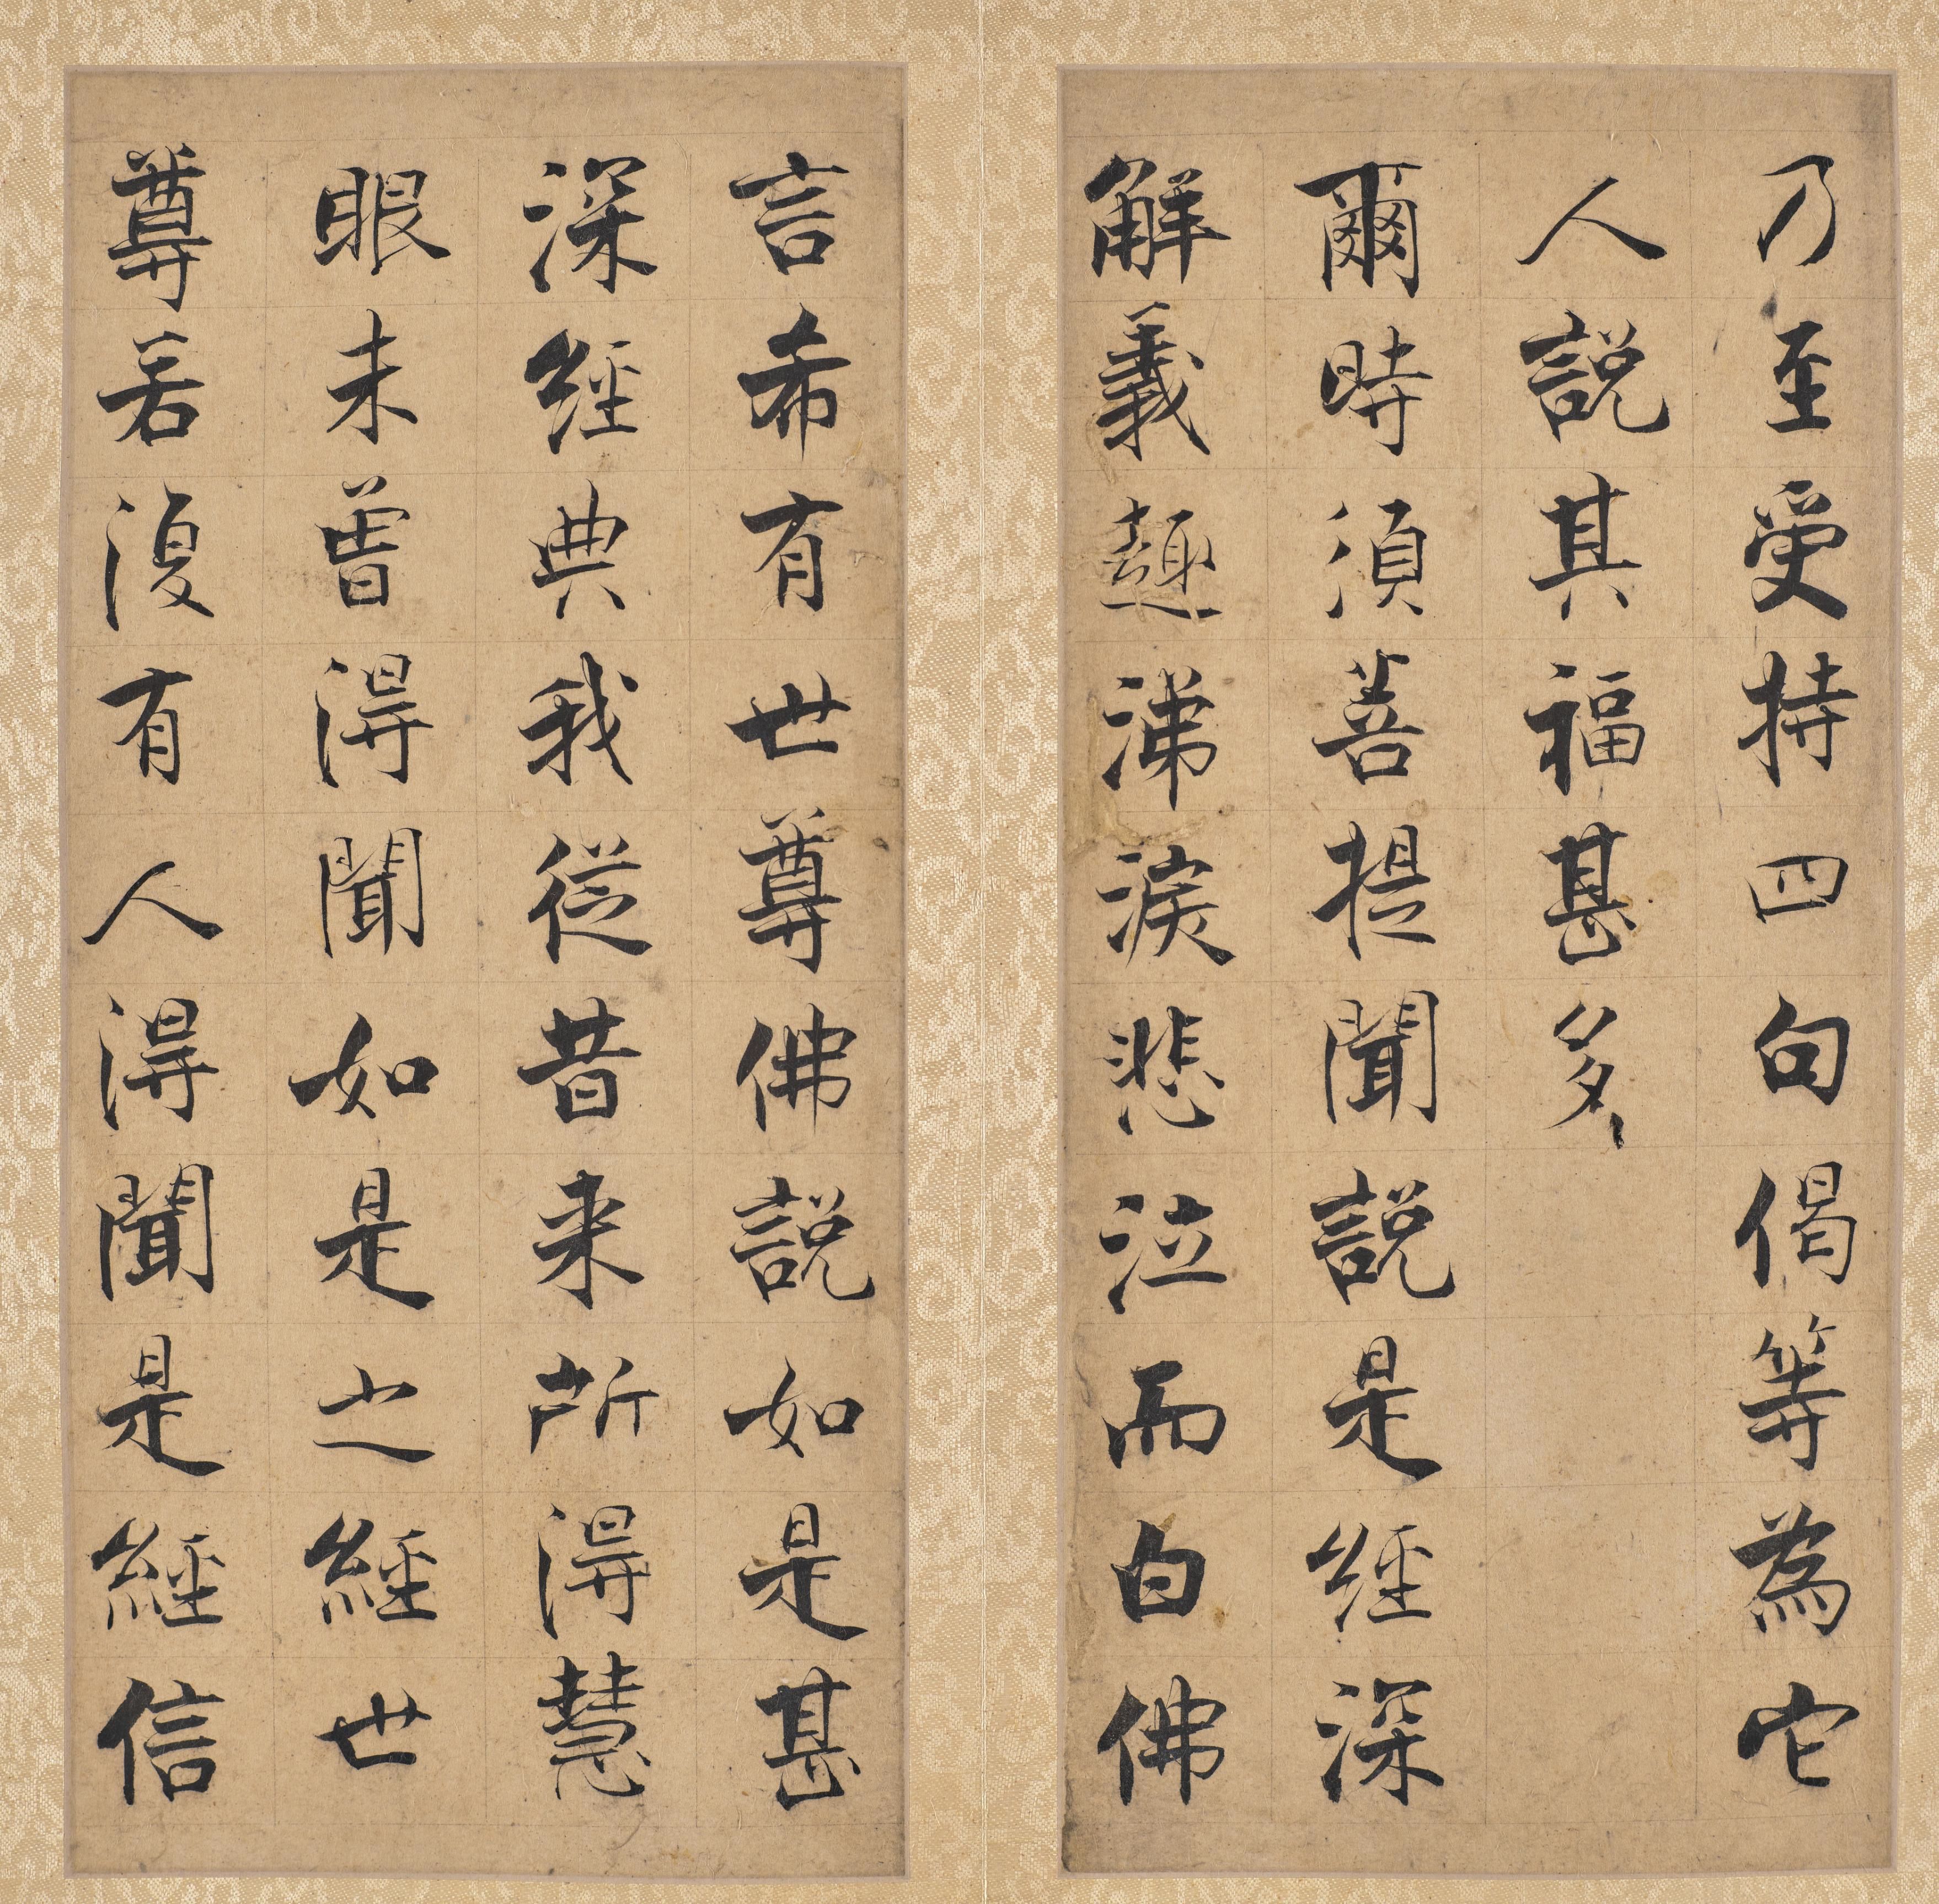 乃至受持四句偈等為它
人說其福甚多
爾時須菩提聞說是經深
解義趣涕淚悲泣而白佛
言希有世尊佛說如是甚
深經典我從昔来所得慧
眼未曾得聞如是之經世
尊若復有人得聞是經信